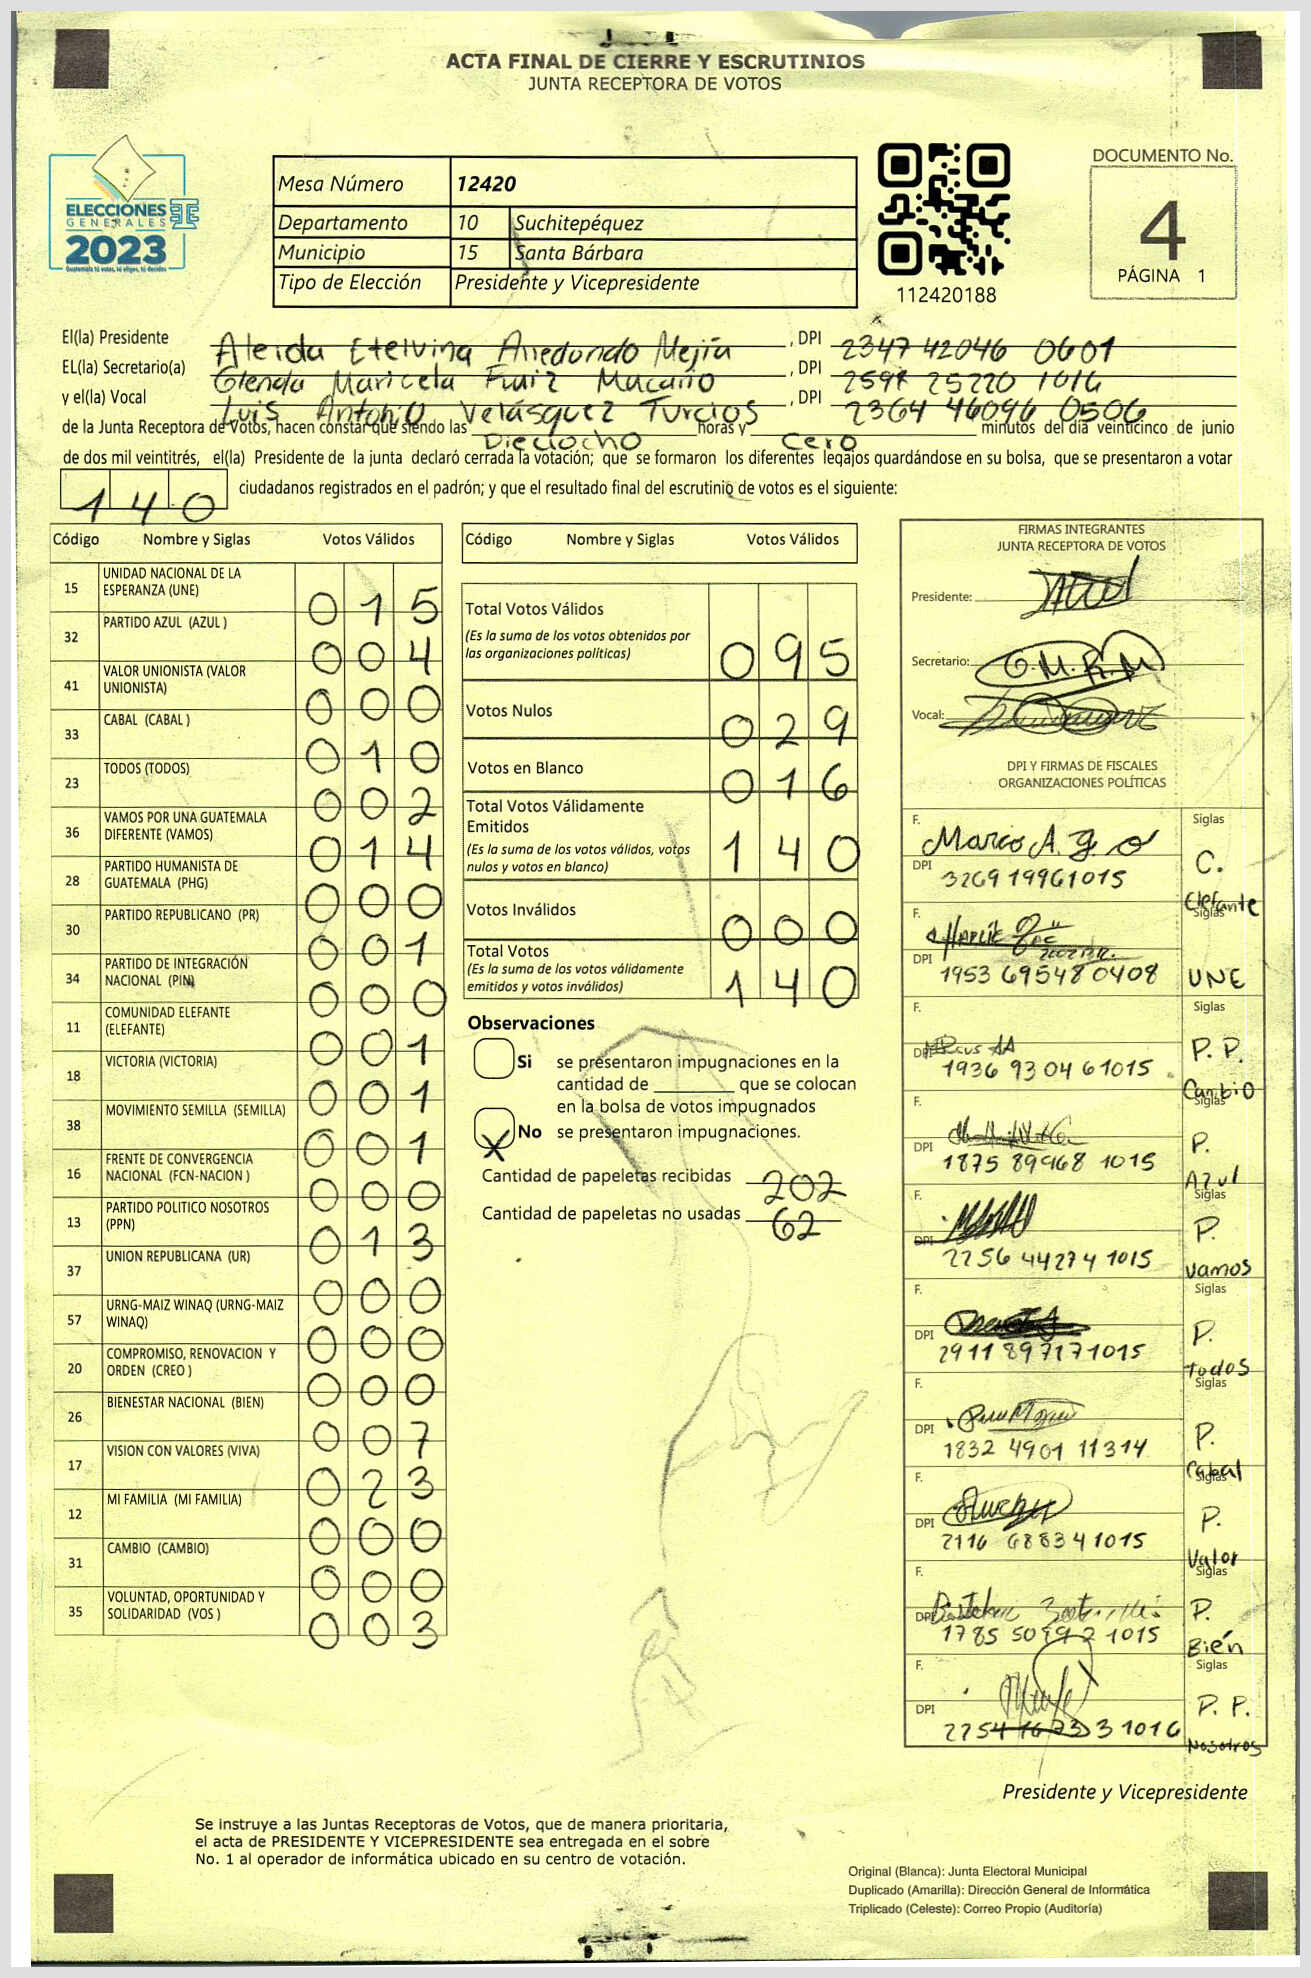 ACTA FINAL DE CIERRE Y ESCRUTINIOS
JUNTA RECEPTORA DE VOTOS
ELECCIONES
GENERALES
2023
Guatemala tú votas, tú eliges, tú decides
Mesa Número 12420
Departamento 10 Suchitepéquez
Municipio 15 Santa Bárbara
Tipo de Elección Presidente y Vicepresidente
112420188
DOCUMENTO No.
4
PÁGINA 1
El(la) Presidente Aleida Etelvina Arredondo Mejía , DPI 2347 42046 0601
EL(la) Secretario(a) Glenda Maricela Ruiz , DPI 25220 1016
y el(la) Vocal Luis Antonio Velásquez Turcios , DPI 2364 46096 0506
de la Junta Receptora de Votos, hacen constar que siendo las Dieciocho horas y cero minutos del día veinticinco de junio
de dos mil veintitrés, el(la) Presidente de la junta declaró cerrada la votación; que se formaron los diferentes legajos guardándose en su bolsa, que se presentaron a votar
140 ciudadanos registrados en el padrón; y que el resultado final del escrutinio de votos es el siguiente:
Código Nombre y Siglas Votos Válidos
15 UNIDAD NACIONAL DE LA ESPERANZA (UNE) 015
32 PARTIDO AZUL (AZUL ) 004
41 VALOR UNIONISTA (VALOR UNIONISTA) 000
33 CABAL (CABAL ) 010
23 TODOS (TODOS) 002
36 VAMOS POR UNA GUATEMALA DIFERENTE (VAMOS) 014
28 PARTIDO HUMANISTA DE GUATEMALA (PHG) 000
30 PARTIDO REPUBLICANO (PR) 001
34 PARTIDO DE INTEGRACIÓN NACIONAL (PIN) 000
11 COMUNIDAD ELEFANTE (ELEFANTE) 001
18 VICTORIA (VICTORIA) 001
38 MOVIMIENTO SEMILLA (SEMILLA) 001
16 FRENTE DE CONVERGENCIA NACIONAL (FCN-NACION ) 000
13 PARTIDO POLITICO NOSOTROS (PPN) 013
37 UNION REPUBLICANA (UR) 000
57 URNG-MAIZ WINAQ (URNG-MAIZ WINAQ) 000
20 COMPROMISO, RENOVACION Y ORDEN (CREO ) 000
26 BIENESTAR NACIONAL (BIEN) 007
17 VISION CON VALORES (VIVA) 023
12 MI FAMILIA (MI FAMILIA) 000
31 CAMBIO (CAMBIO) 000
35 VOLUNTAD, OPORTUNIDAD Y SOLIDARIDAD (VOS ) 003
Código Nombre y Siglas Votos Válidos
Total Votos Válidos 095
(Es la suma de los votos obtenidos por
las organizaciones políticas)
Votos Nulos 029
Votos en Blanco 016
Total Votos Válidamente
Emitidos 140
(Es la suma de los votos válidos, votos
nulos y votos en blanco)
Votos Inválidos 000
Total Votos 140
(Es la suma de los votos válidamente
emitidos y votos inválidos)
Observaciones
Si se presentaron impugnaciones en la
cantidad de ________ que se colocan
en la bolsa de votos impugnados
X No se presentaron impugnaciones.
Cantidad de papeletas recibidas 202
Cantidad de papeletas no usadas 62
FIRMAS INTEGRANTES
JUNTA RECEPTORA DE VOTOS
Presidente:
Secretario: G.M.R.M
Vocal:
DPI Y FIRMAS DE FISCALES
ORGANIZACIONES POLÍTICAS
F. Marco A. Siglas
DPI 3269 19961015 C. Elefante
F. Siglas
DPI 1953 69548 0408 UNE
F. Siglas
DPI 1936 93046 1015 P. P. Cambio
F. Siglas
DPI 1875 89968 1015 P. Azul
F. Siglas
DPI 2256 44274 1015 P. Vamos
F. Siglas
DPI 2911 89717 1015 P. Todos
F. Siglas
DPI 1832 4901 11314 P. Cabal
F. Siglas
DPI 2116 68834 1015 P. Valor
F. Siglas
DPI 1785 1015 P. Bién
F. Siglas
DPI 1016 P. P. Nosotros
Presidente y Vicepresidente
Se instruye a las Juntas Receptoras de Votos, que de manera prioritaria,
el acta de PRESIDENTE Y VICEPRESIDENTE sea entregada en el sobre
No. 1 al operador de informática ubicado en su centro de votación.
Original (Blanca): Junta Electoral Municipal
Duplicado (Amarilla): Dirección General de Informática
Triplicado (Celeste): Correo Propio (Auditoría)